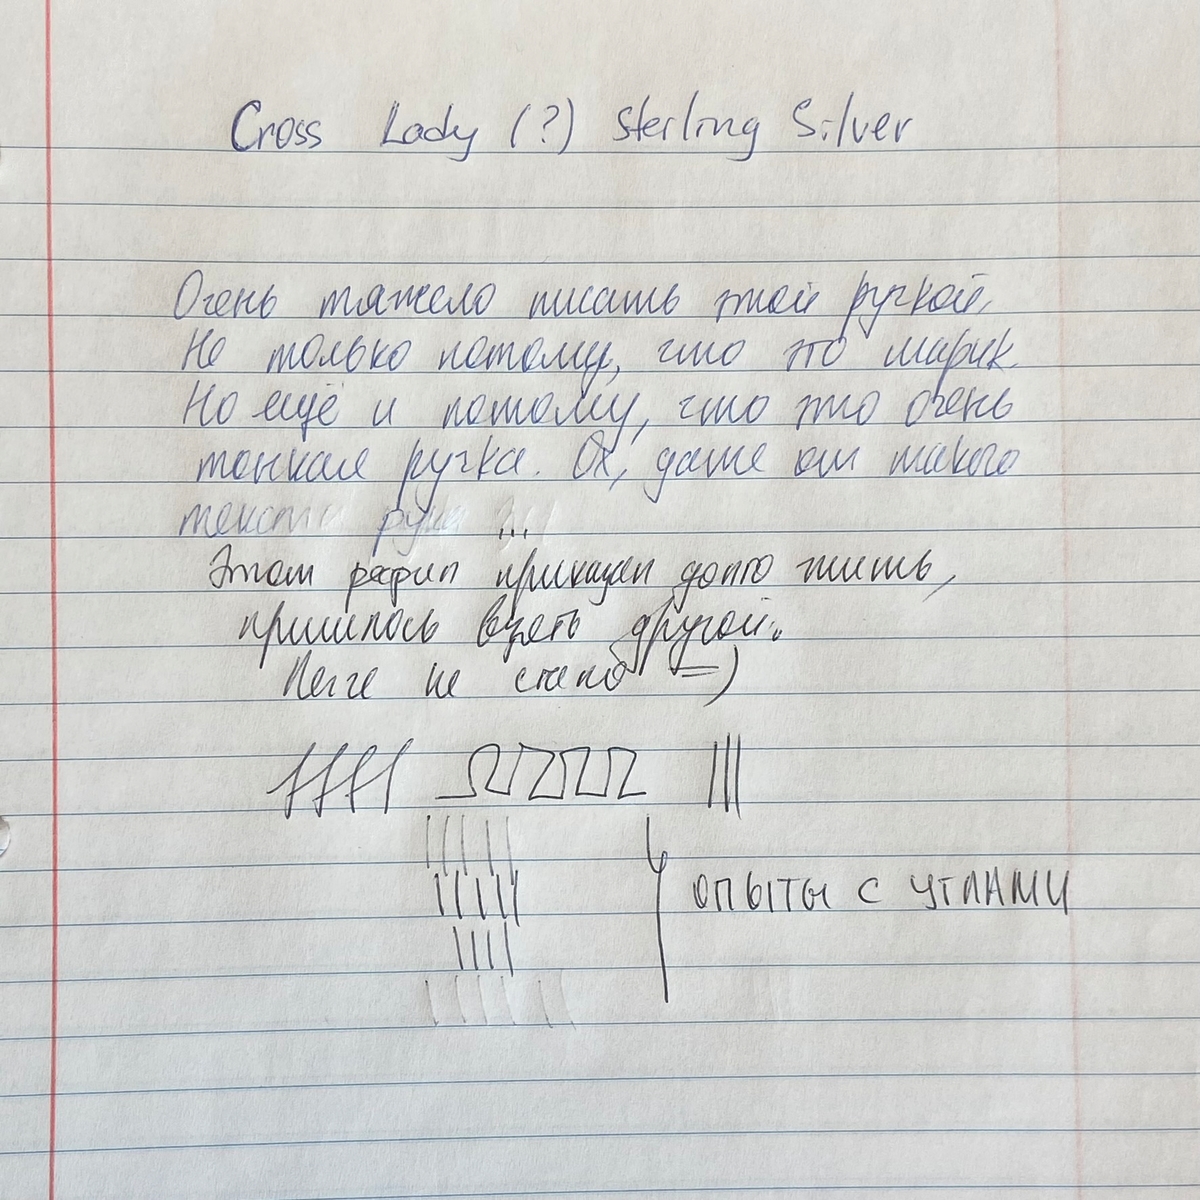 Cross Lady (?) Sterling Silver
Очень тяжело писать этой ручкой.
Не только потому, что это шарик.
Но ещё и потому, что это очень
тонкая ручка. Ох, даже от такого
текста рука ...
Этот рефил приказал долго жить,
пришлось взять другой.
Легче не стало =)
опыты с углами